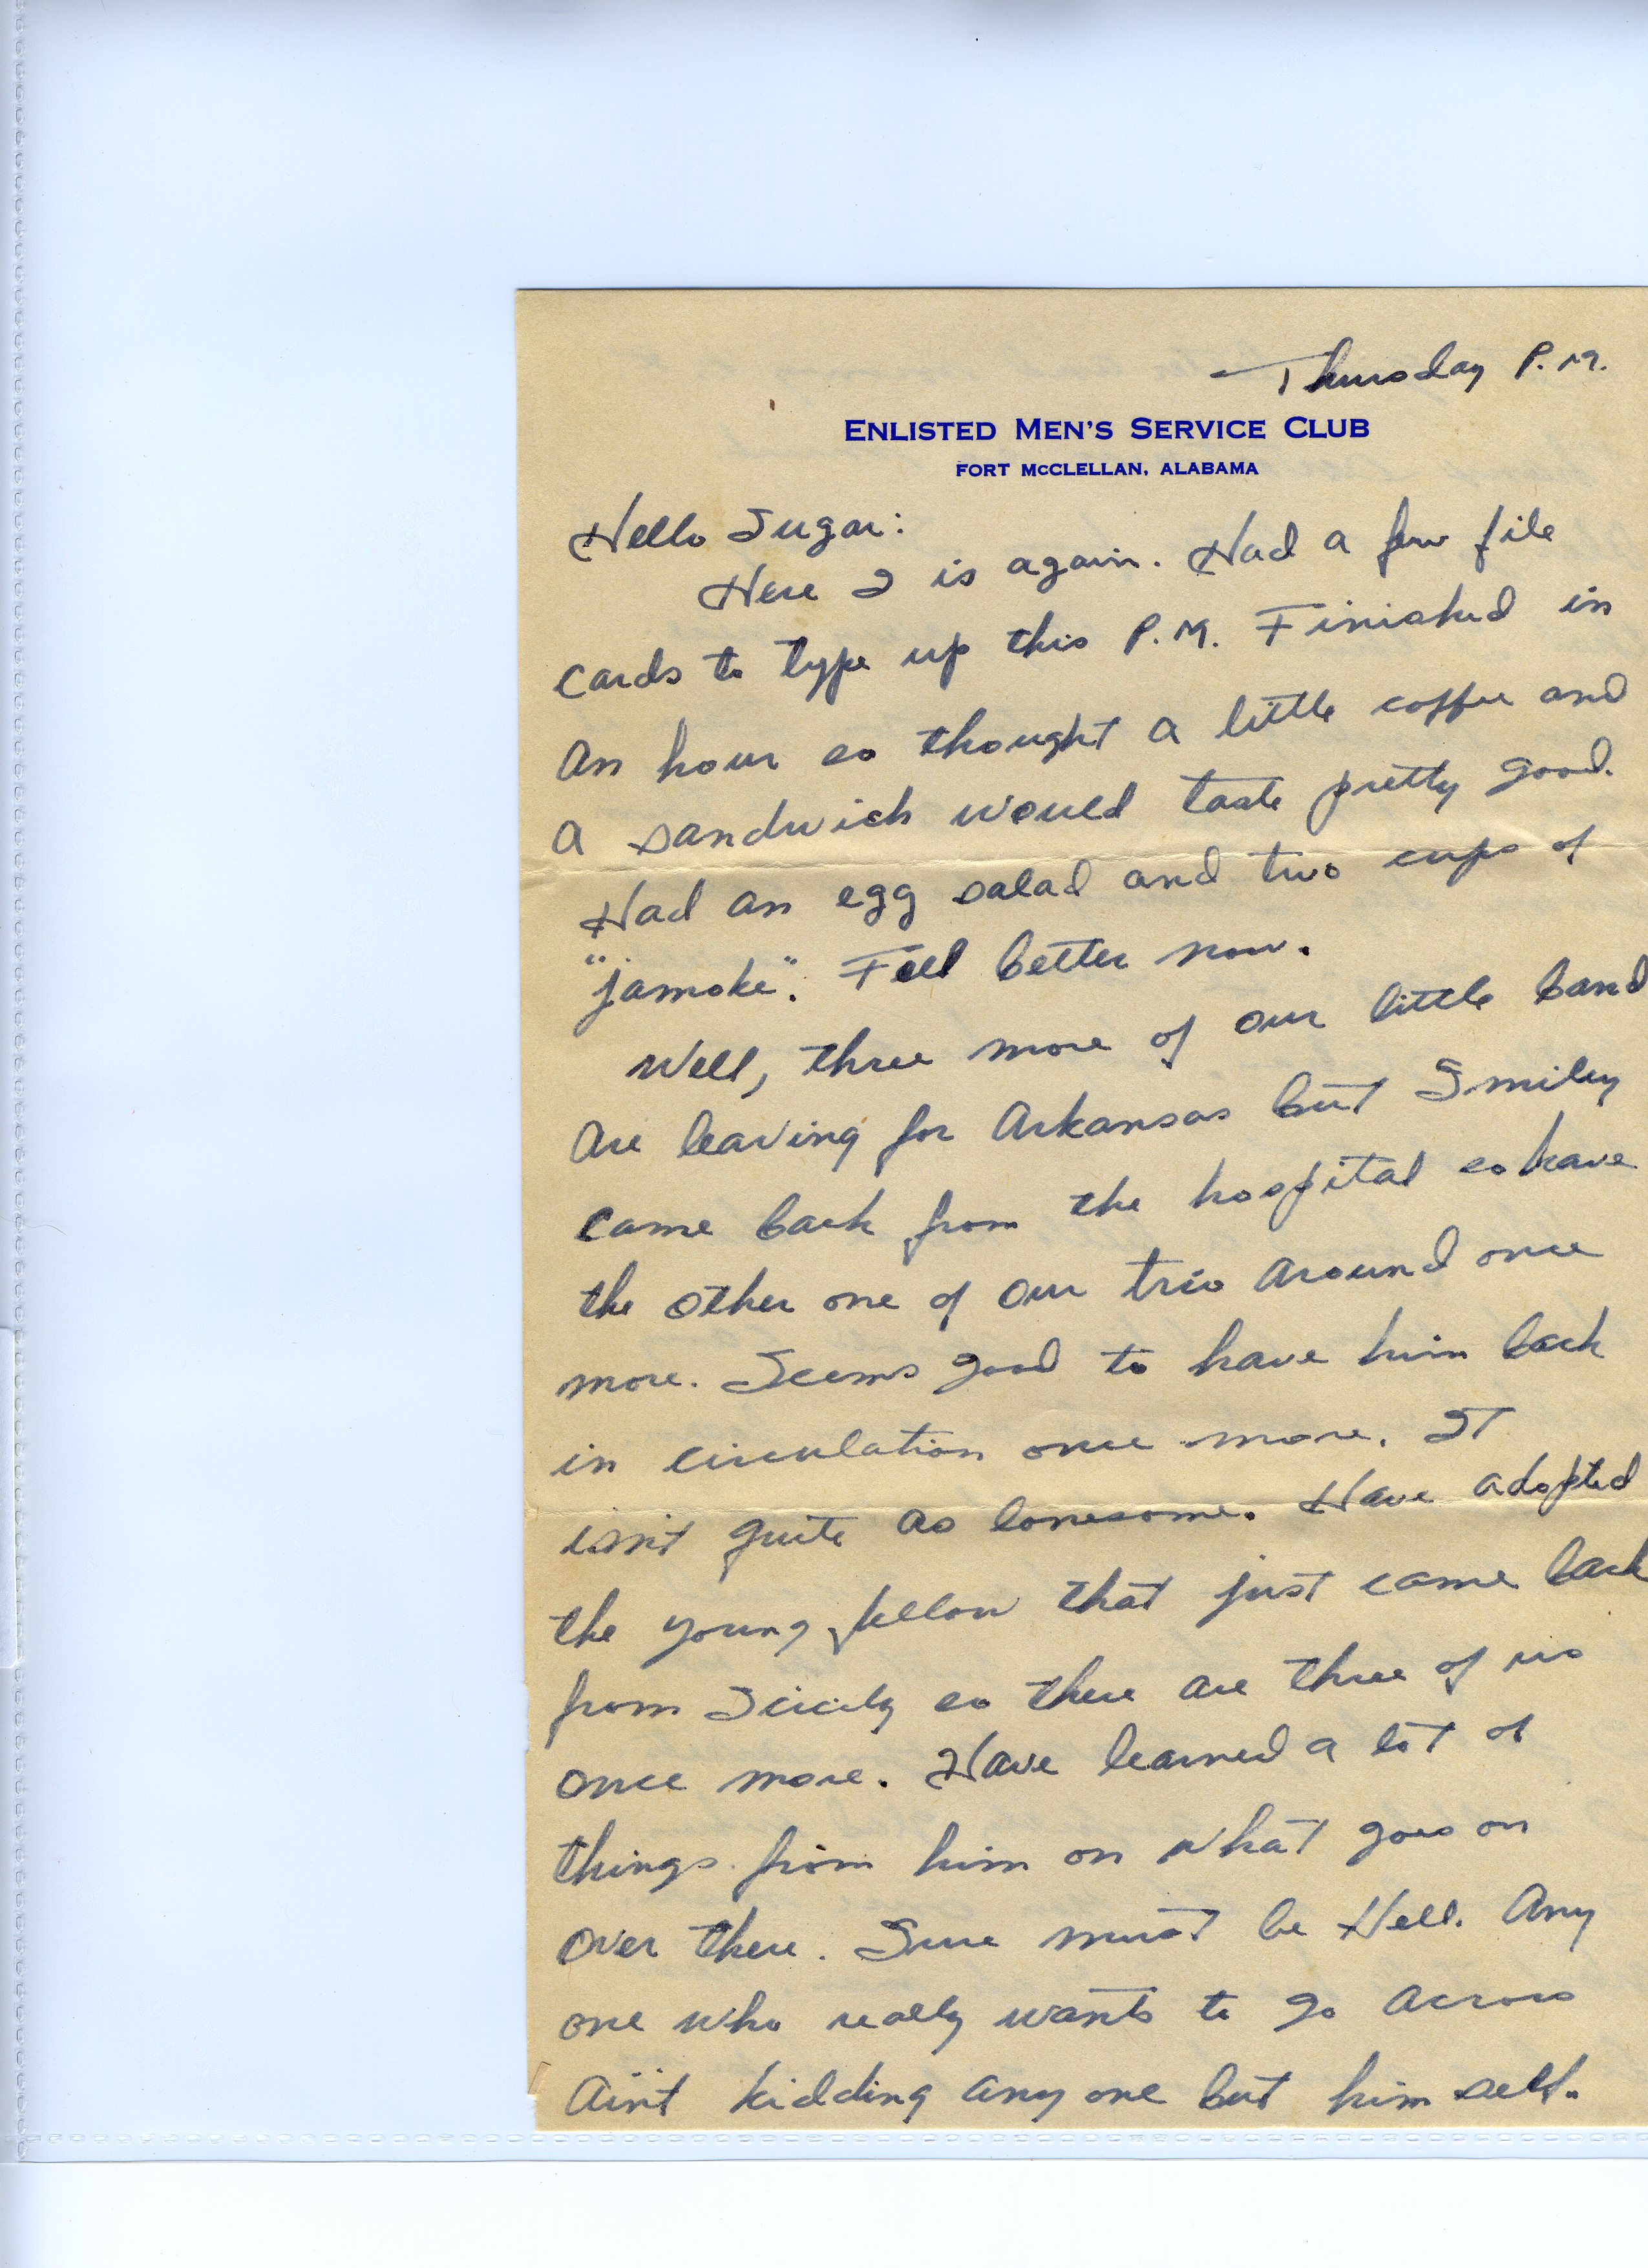 Thursday P.M.
ENLISTED MEN'S SERVICE CLUB
FORT McCLELLAN, ALABAMA
Hello Sugar:
Here I is again. Had a few file
cards to type up this P.M. Finished in
an hour so thought a little coffee and
a sandwich would taste pretty good.
Had an egg salad and two cups of
"jamoke". Feel better now.
Well, three more of our little band
are leaving for Arkansas but Smiley
came back from the hospital so have
the other one of our trio around once
more. Seems good to have him back
in circulation once more. It
isn't quite as lonesome. Have adopted
the young fellow that just came back
from Scicily so there are three of us
once more. Have learned a lot of
things from him on what goes on
over there. Sure must be Hell. Any
one who really wants to go across
ain't kidding any one but him self.